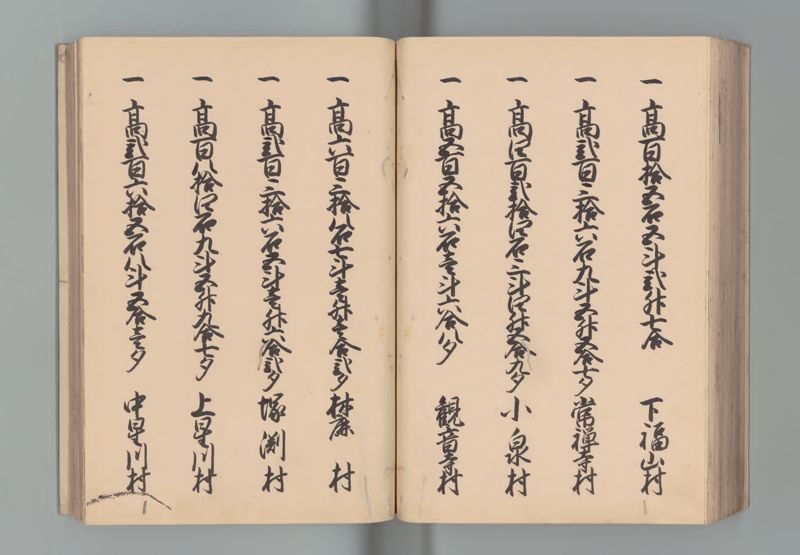 一 高百拾五石五斗弐升七合 下福山村
一 高弐百三拾六石九斗五升五合七夕 常禅寺村
一 高四百弐拾四石三斗四升五合九夕 小泉村
一 高五百五拾六石壱斗六合八夕 観音寺村
一 高六百三拾八石七斗壱升壱合弐夕 村
一 高弐百三拾六石五斗壱升六合弐夕 塚渕村
一 高百八拾四石九斗五升九合七夕 上星川村
一 高弐百六拾五石八斗五合壱夕 中星川村